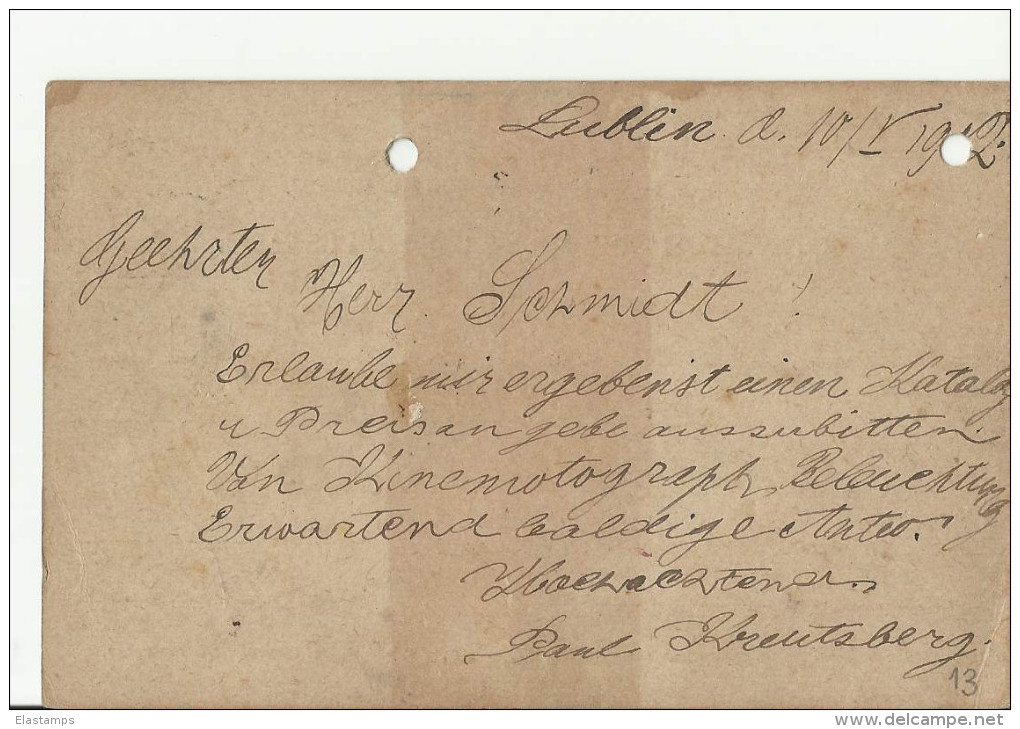 Lublin d. 10/V 1912.
Geehrten
Herr. Schmidt !
Erlaube mir ergebenst einen Katalog
u Preisangebe auszubitten.
Von Kinemotograph Beleuchtung
Erwartend baldige Antw.
Hochachtend.
Paul Kreutsberg.
13
Elastamps
www.delcampe.net